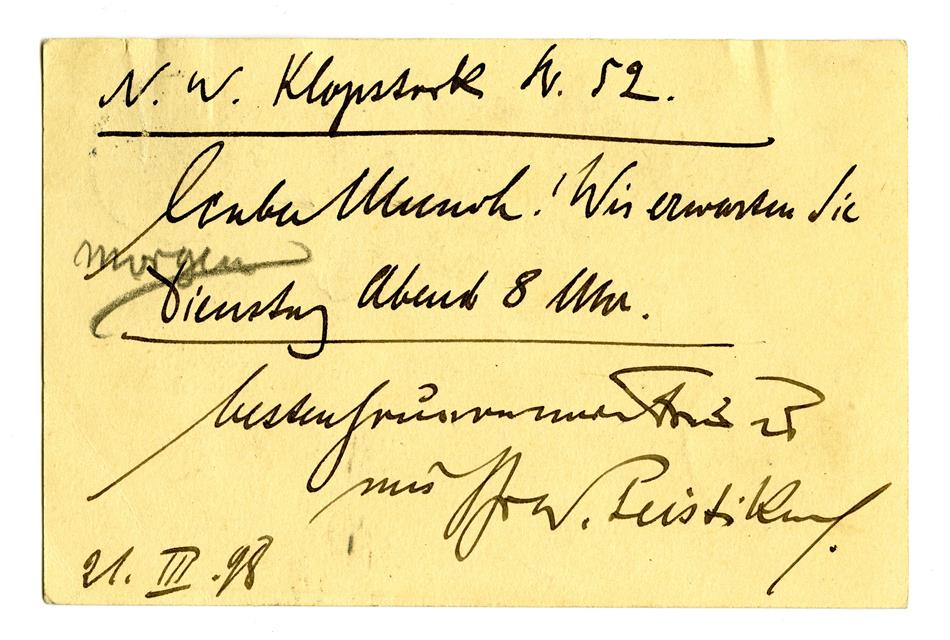 N. W. Klopstock Str. 52.
Lieber Munch! Wir erwarten Sie
morgen
Dienstag Abend 8 Uhr.
besten Gruss von meiner Frau u
Ihr W. Leistikow.
21. III. 98